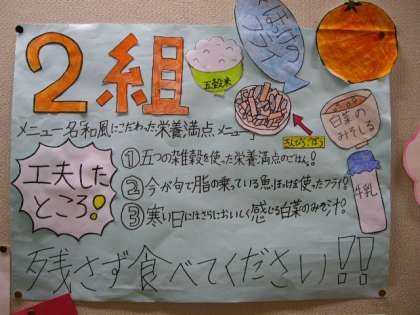 2組
五穀米
ほっけの
フライ
きんぴらごぼう
白菜の
みそしる
牛乳
メニュー名「和風にこだわった栄養満点メニュー」
工夫した
ところ!
①五つの雑穀を使った栄養満点のごはん!
②今が旬で脂の乗っている魚、ほっけを使ったフライ!
③寒い日にはさらにおいしく感じる白菜のみそ汁。
残さず食べてください!!